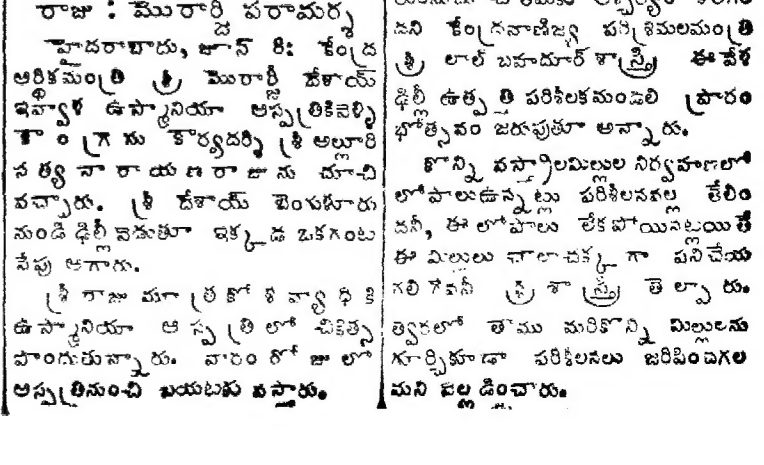 రాజు : మొరార్జీ పరామర్శ
హైదరాబాదు, జూన్ 8: కేంద్ర
ఆర్థికమంత్రి శ్రీ మొరార్జీ దేశాయ్
ఇవ్వాళ ఉస్మానియా ఆస్పత్రికివెళ్ళి
కాంగ్రెసు కార్యదర్శి శ్రీ అల్లూరి
సత్యనారాయణరాజును చూచి
వచ్చారు. శ్రీ దేశాయ్ బెంగుళూరు
నుండి ఢిల్లీ వెడుతూ ఇక్కడ ఒకగంట
సేపు ఆగారు.
శ్రీ రాజు మూత్రకోశవ్యాధికి
ఉస్మానియా ఆస్పత్రిలో చికిత్స
పొందుతున్నారు. వారం రోజులలో
ఆస్పత్రినుంచి బయటకు వస్తారు.
దని కేంద్రవాణిజ్య పరిశ్రమలమంత్రి
శ్రీ లాల్ బహదూర్ శాస్త్రి ఈవేళ
ఢిల్లీ ఉత్పత్తి పరిశీలకమండలి ప్రారం
భోత్సవం జరుపుతూ అన్నారు.
కొన్ని వస్త్రాలమిల్లుల నిర్వహణలో
లోపాలుఉన్నట్లు పరిశీలనవల్ల తేలిం
దనీ, ఈ లోపాలు లేకపోయినట్లయితే
ఈ మిల్లులు చాలాచక్కగా పనిచేయ
గలిగేవనీ శ్రీ శాస్త్రి తెల్పారు.
త్వరలో తాము మరికొన్ని మిల్లులను
గూర్చికూడా పరిశీలనలు జరిపించగల
మని వెల్లడించారు.